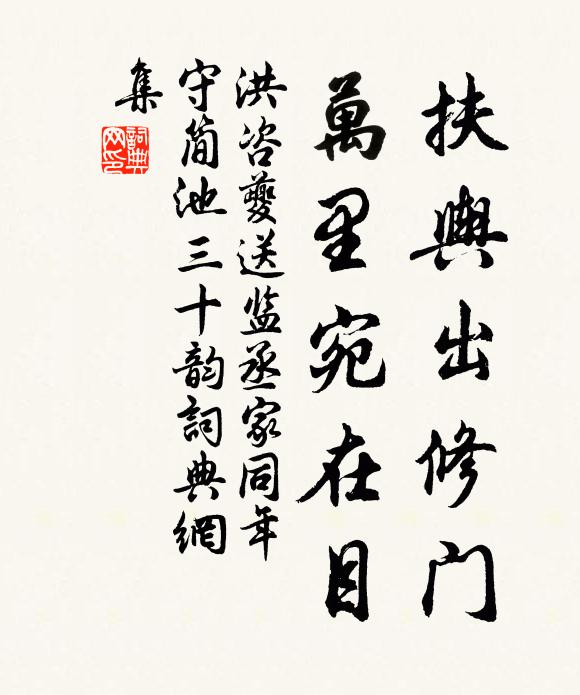 扶輿出修门
萬里宛在目
洪咨夔送监丞家同年
守简池三十韵詞典網
集
詞典网印